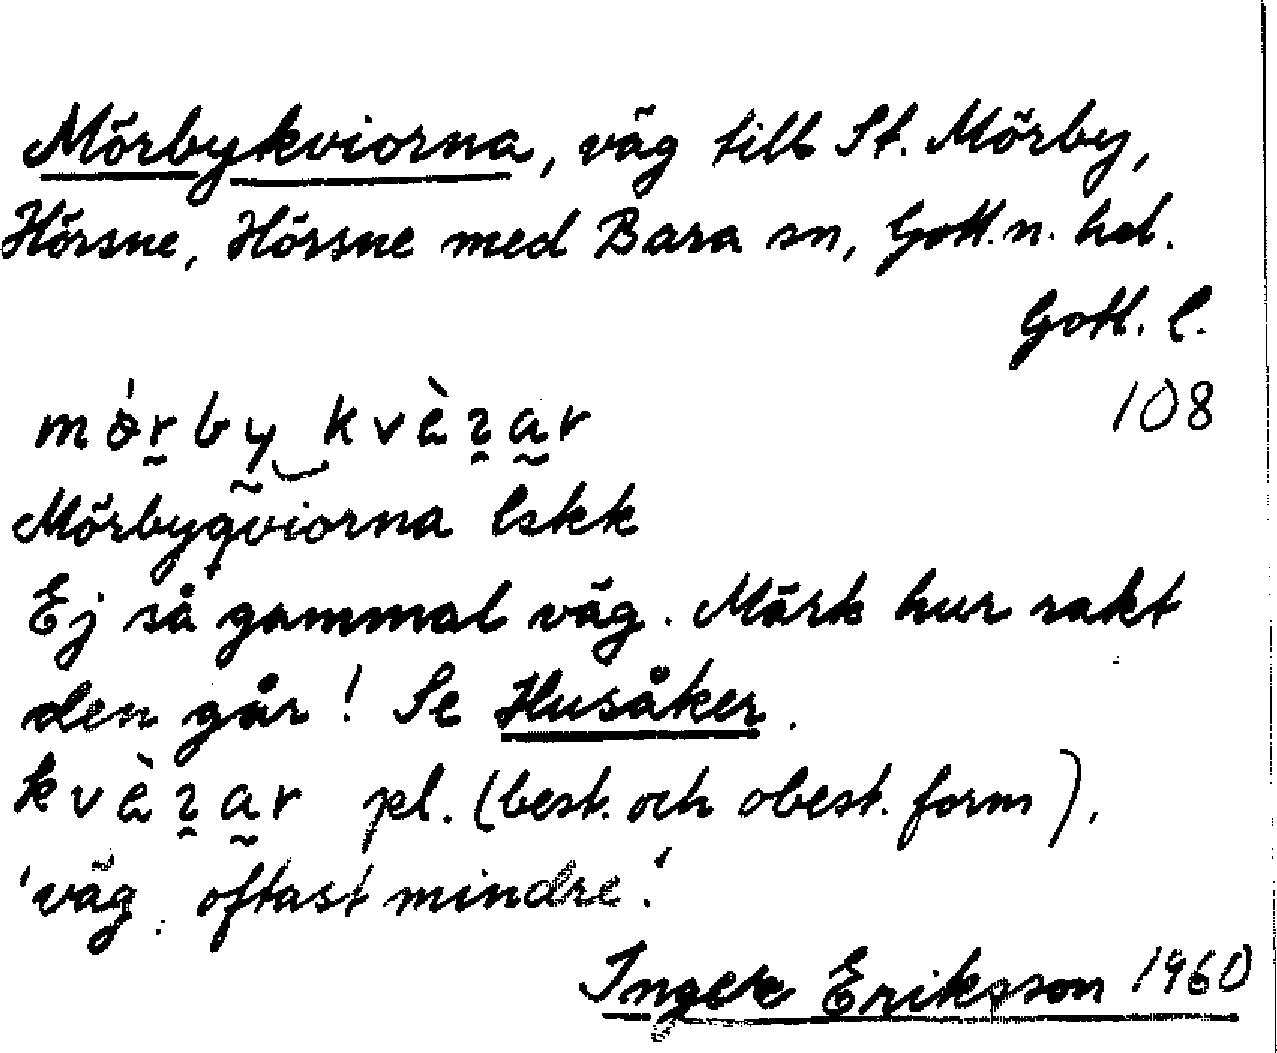 Mörbykviorna, väg till St. Mörby,
Hörsne, Hörsne med Bara sn, Gotl. n. hd.
Gotl. l.
108
mörby kvèar
Mörbyqviorna lskk
Ej så gammal väg. Märk hur rakt
den går! Se Husåker.
kvèar pl. (best. och obest. form),
'väg, oftast mindre.'
Eriksson 1960